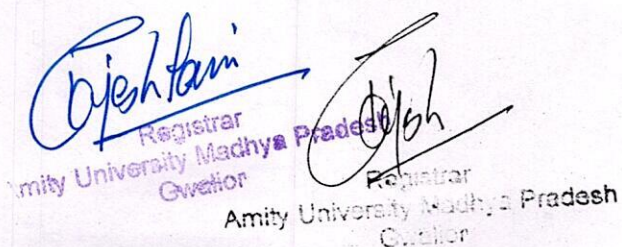 Registrar
Amity University Madhya Pradesh
Gwalior
Registrar
Amity University Madhya Pradesh
Gwalior